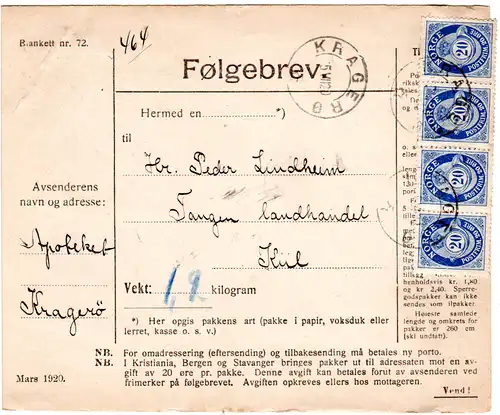 Blankett nr. 72.
464
KRAGERØ
Følgebrev.
Hermed en *)
til
Hr. Peder Lindheim
Tangen landhandel
Kiil
Avsenderens
navn og adresse:
Apoteket
Kragerø
Vekt: 1,2 kilogram
*) Her opgis pakkens art (pakke i papir, voksduk eller
lerret, kasse o. s. v.)
NORGE
20
POSTFRIM
NORGE
20
POSTFRIM
NORGE
20
POSTFRIM
NORGE
20
POSTFRIM
benholdsvis kr. 1,80
og kr. 2,40. Sperre-
godspakker kan ikke
sendes som ilpakker.
Høieste samlede
lengde og omkrets for
pakker er 260 cm
(ski undtatt).
NB. For omadressering (eftersending) og tilbakesending må betales ny porto.
NB. I Kristiania, Bergen og Stavanger bringes pakker ut til adressaten mot en av-
gift av 20 øre pr. pakke. Denne avgift kan betales forut av avsenderen ved
frimerker på følgebrevet. Avgiften opkreves ellers hos mottageren.
Mars 1920.
Vend!